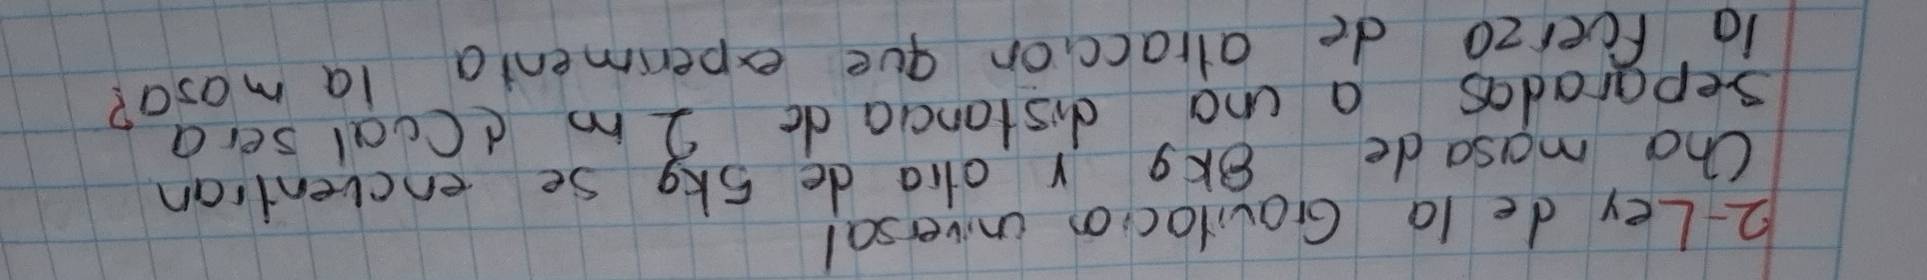 2-Ley de la Gravitacion universal
Una masa de 8kg y otra de 5kg se encuentran
separadas a una distancia de 2m ¿Cual sera
la Fuerza de atraccion que experimenta la masa?